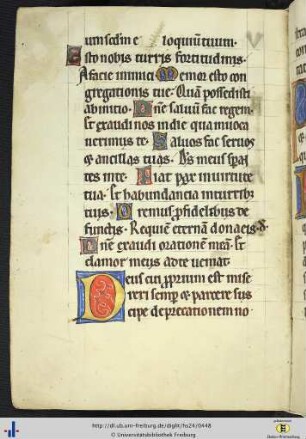 um sedm e loquium tuum.
Esto nobis turris fortitudinis
A facie inimici Memor esto con
gregationis tue. Quā possedisti
ab initio. Dn̄e saluū fac regem
Et exaudi nos in die qua inuoca
uerimus te. Saluos fac seruos
et ancillas tuas. Ds̄ meus spān
tes in te. Fiat pax in uirtute
tua. Et habundancia in turrib;
tuis. Oremus ꝓ fidelibus de
functis. Requiē eternā dona eis d.
Dn̄e exaudi orationē meā. Et
clamor meus ad te ueniat.
Deus cui ꝓprium est mise
reri semꝑ et parcere sus
cipe deprecationem no
http://dl.ub.uni-freiburg.de/diglit/hs24/0448
© Universitätsbibliothek Freiburg